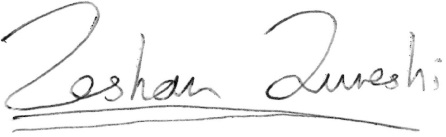 Zeshan Qureshi